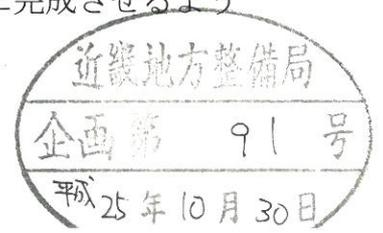 完成させるよう
近畿地方整備局
企画第 91 号
平成25年10月30日